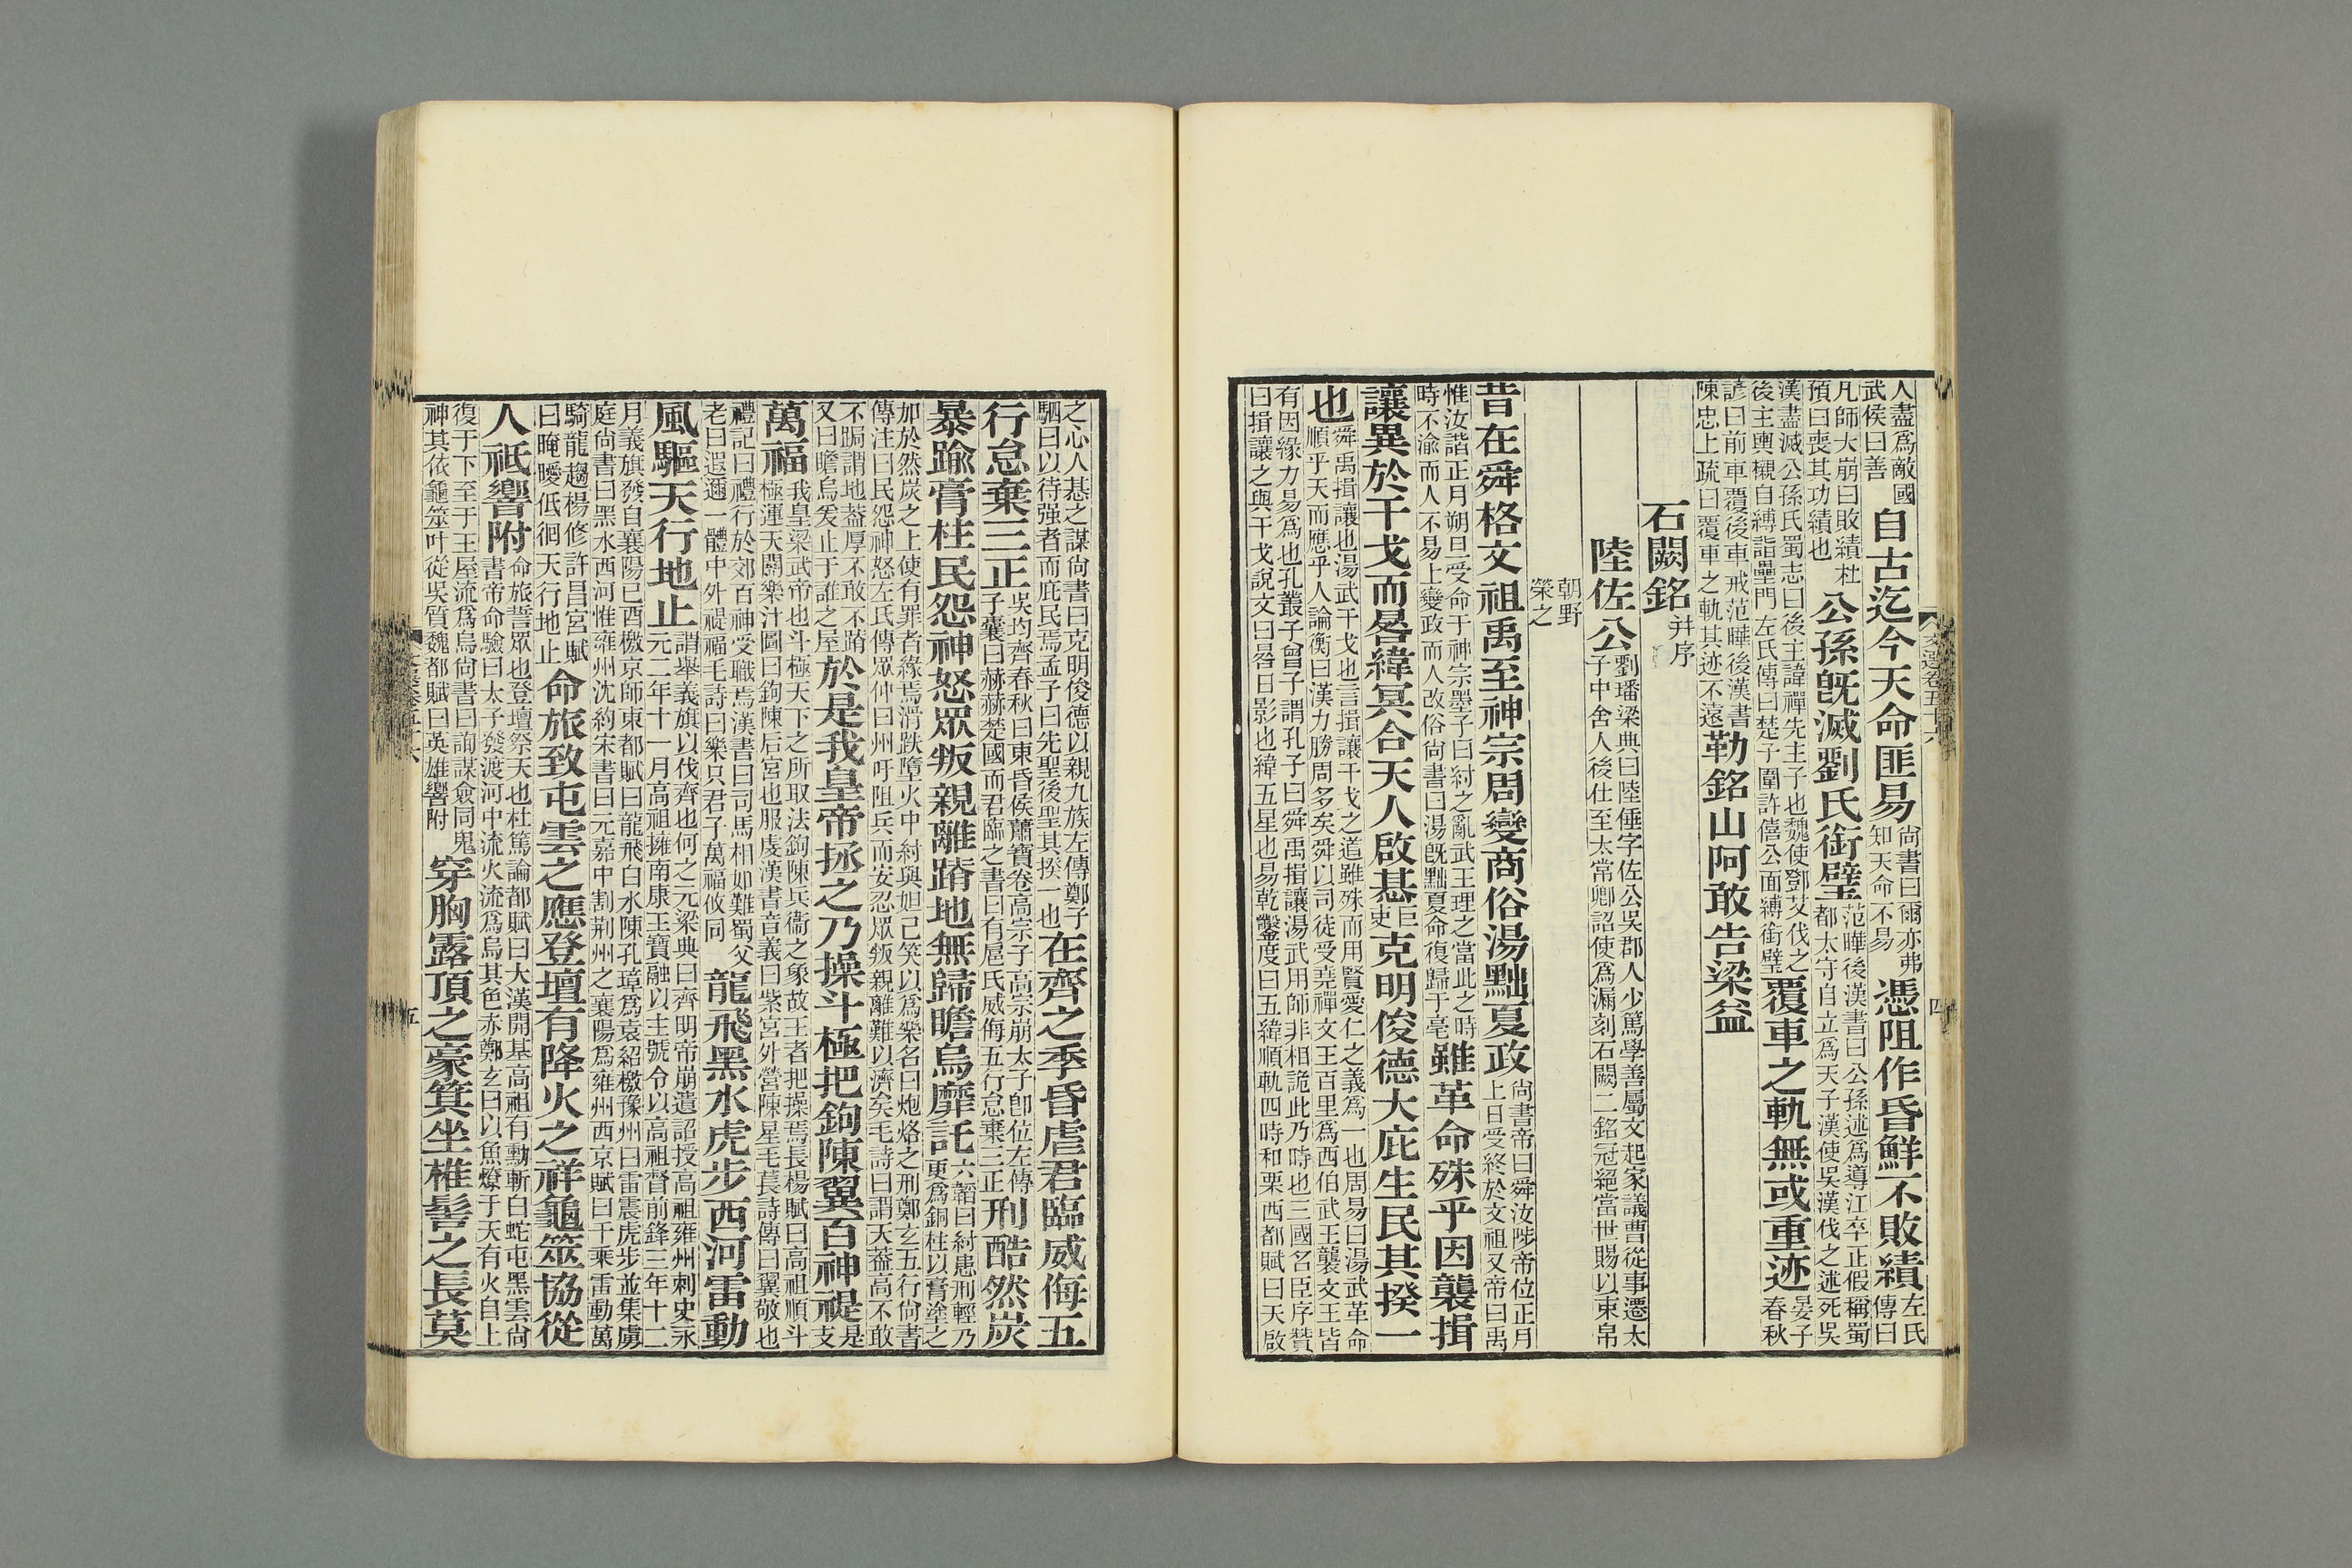 人盡爲敵國武侯曰善自古迄今天命匪易尚書曰爾亦弗知天命不易憑阻作昏鮮不敗績左氏傳曰
凡師大崩曰敗績杜預曰喪其功績也公孫旣滅劉氏銜璧范曄後漢書曰公孫述爲導江卒正假稱蜀都太守自立爲天子漢使吳漢伐之述死吳
漢盡滅公孫氏蜀志曰後主諱禪先主子也魏使鄧艾伐之後主輿櫬自縛詣壘門左氏傳曰楚子圍許僖公面縛銜璧覆車之軌無或重迹晏子春秋
諺曰前車覆後車戒范曄後漢書陳忠上疏曰覆車之軌其迹不遠勒銘山阿敢告梁益
石闕銘并序
陸佐公劉璠梁典曰陸倕字佐公吳郡人少篤學善屬文起家議曹從事遷太子中舍人後仕至太常卿詔使爲漏刻石闕二銘冠絕當世賜以束帛
朝野榮之
昔在舜格文祖禹至神宗周變商俗湯黜夏政尚書帝曰舜汝陟帝位正月上日受終於文祖又帝曰禹
惟汝諧正月朔旦受命于神宗墨子曰紂之亂武王理之當此之時時不渝而人不易上變政而人改俗尚書曰湯旣黜夏命復歸于亳雖革命殊乎因襲揖
讓異於干戈而晷緯冥合天人啟惎巨吏克明俊德大庇生民其揆一
也舜禹揖讓也湯武干戈也言揖讓干戈之道雖殊而用賢愛仁之義爲一也周易曰湯武革命順乎天而應乎人論衡曰漢力勝周多矣舜以司徒受堯禪文王百里爲西伯武王襲文王皆
有因緣力易爲也孔叢子曾子謂孔子曰舜禹揖讓湯武用師非相詭此乃時也三國名臣序贊曰揖讓之與干戈說文曰晷日影也緯五星也易乾鑿度曰五緯順軌四時和栗西都賦曰天啟
文選卷五十六 四
之心人惎之謀尚書曰克明俊德以親九族左傳鄭子駟曰以待强者而庇民焉孟子曰先聖後聖其揆一也在齊之季昏虐君臨威侮五
行怠棄三正吳均齊春秋曰東昏侯蕭寶卷高宗子高宗崩太子卽位左傳子囊曰赫赫楚國而君臨之書曰有扈氏威侮五行怠棄三正刑酷然炭
暴踰膏柱民怨神怒眾叛親離蹐地無歸瞻烏靡託六韜曰紂患刑輕乃更爲銅柱以膏塗之
加於然炭之上使有罪者緣焉滑跌墮火中紂與妲己笑以爲樂名曰炮烙之刑鄭玄五行尚書傳注曰民怨神怒左氏傳眾仲曰州吁阻兵而安忍眾叛親離難以濟矣毛詩曰謂天葢高不敢
不跼謂地葢厚不敢不蹐又曰瞻烏爰止于誰之屋於是我皇帝拯之乃操斗極把鉤陳翼百神禔是支
萬福我皇梁武帝也斗極天下之所取法鉤陳兵衞之象故王者把操焉長楊賦曰高祖順斗極運天關樂汁圖曰鉤陳后宮也服虔漢書音義曰紫宮外營陳星毛萇詩傳曰翼敬也
禮記曰禮行於郊百神受職焉漢書曰司馬相如難蜀父老曰遐邇一體中外禔福毛詩曰樂只君子萬福攸同龍飛黑水虎步西河雷動
風驅天行地止謂舉義旗以伐齊也何之元梁典曰齊明帝崩遺詔授高祖雍州刺史永元二年十一月高祖擁南康王寶融以主號令以高祖督前鋒三年十二
月義旗發自襄陽已酉檄京師東都賦曰龍飛白水陳孔璋爲袁紹檄豫州曰雷震虎步並集虜庭尚書曰黑水西河惟雍州沈約宋書曰元嘉中割荆州之襄陽爲雍州西京賦曰千乘雷動萬
騎龍趨楊修許昌宮賦曰晻曖低徊天行地止命旅致屯雲之應登壇有降火之祥龜筮協從
人祇響附命旅誓眾也登壇祭天也杜篤論都賦曰大漢開基高祖有勳斬白蛇屯黑雲尚書帝命驗曰太子發渡河中流火流爲烏其色赤鄭玄曰以魚燎于天有火自上
復于下至于王屋流爲烏尚書曰詢謀僉同鬼神其依龜筮叶從吳質魏都賦曰英雄響附穿胸露頂之豪箕坐椎髻之長莫
五